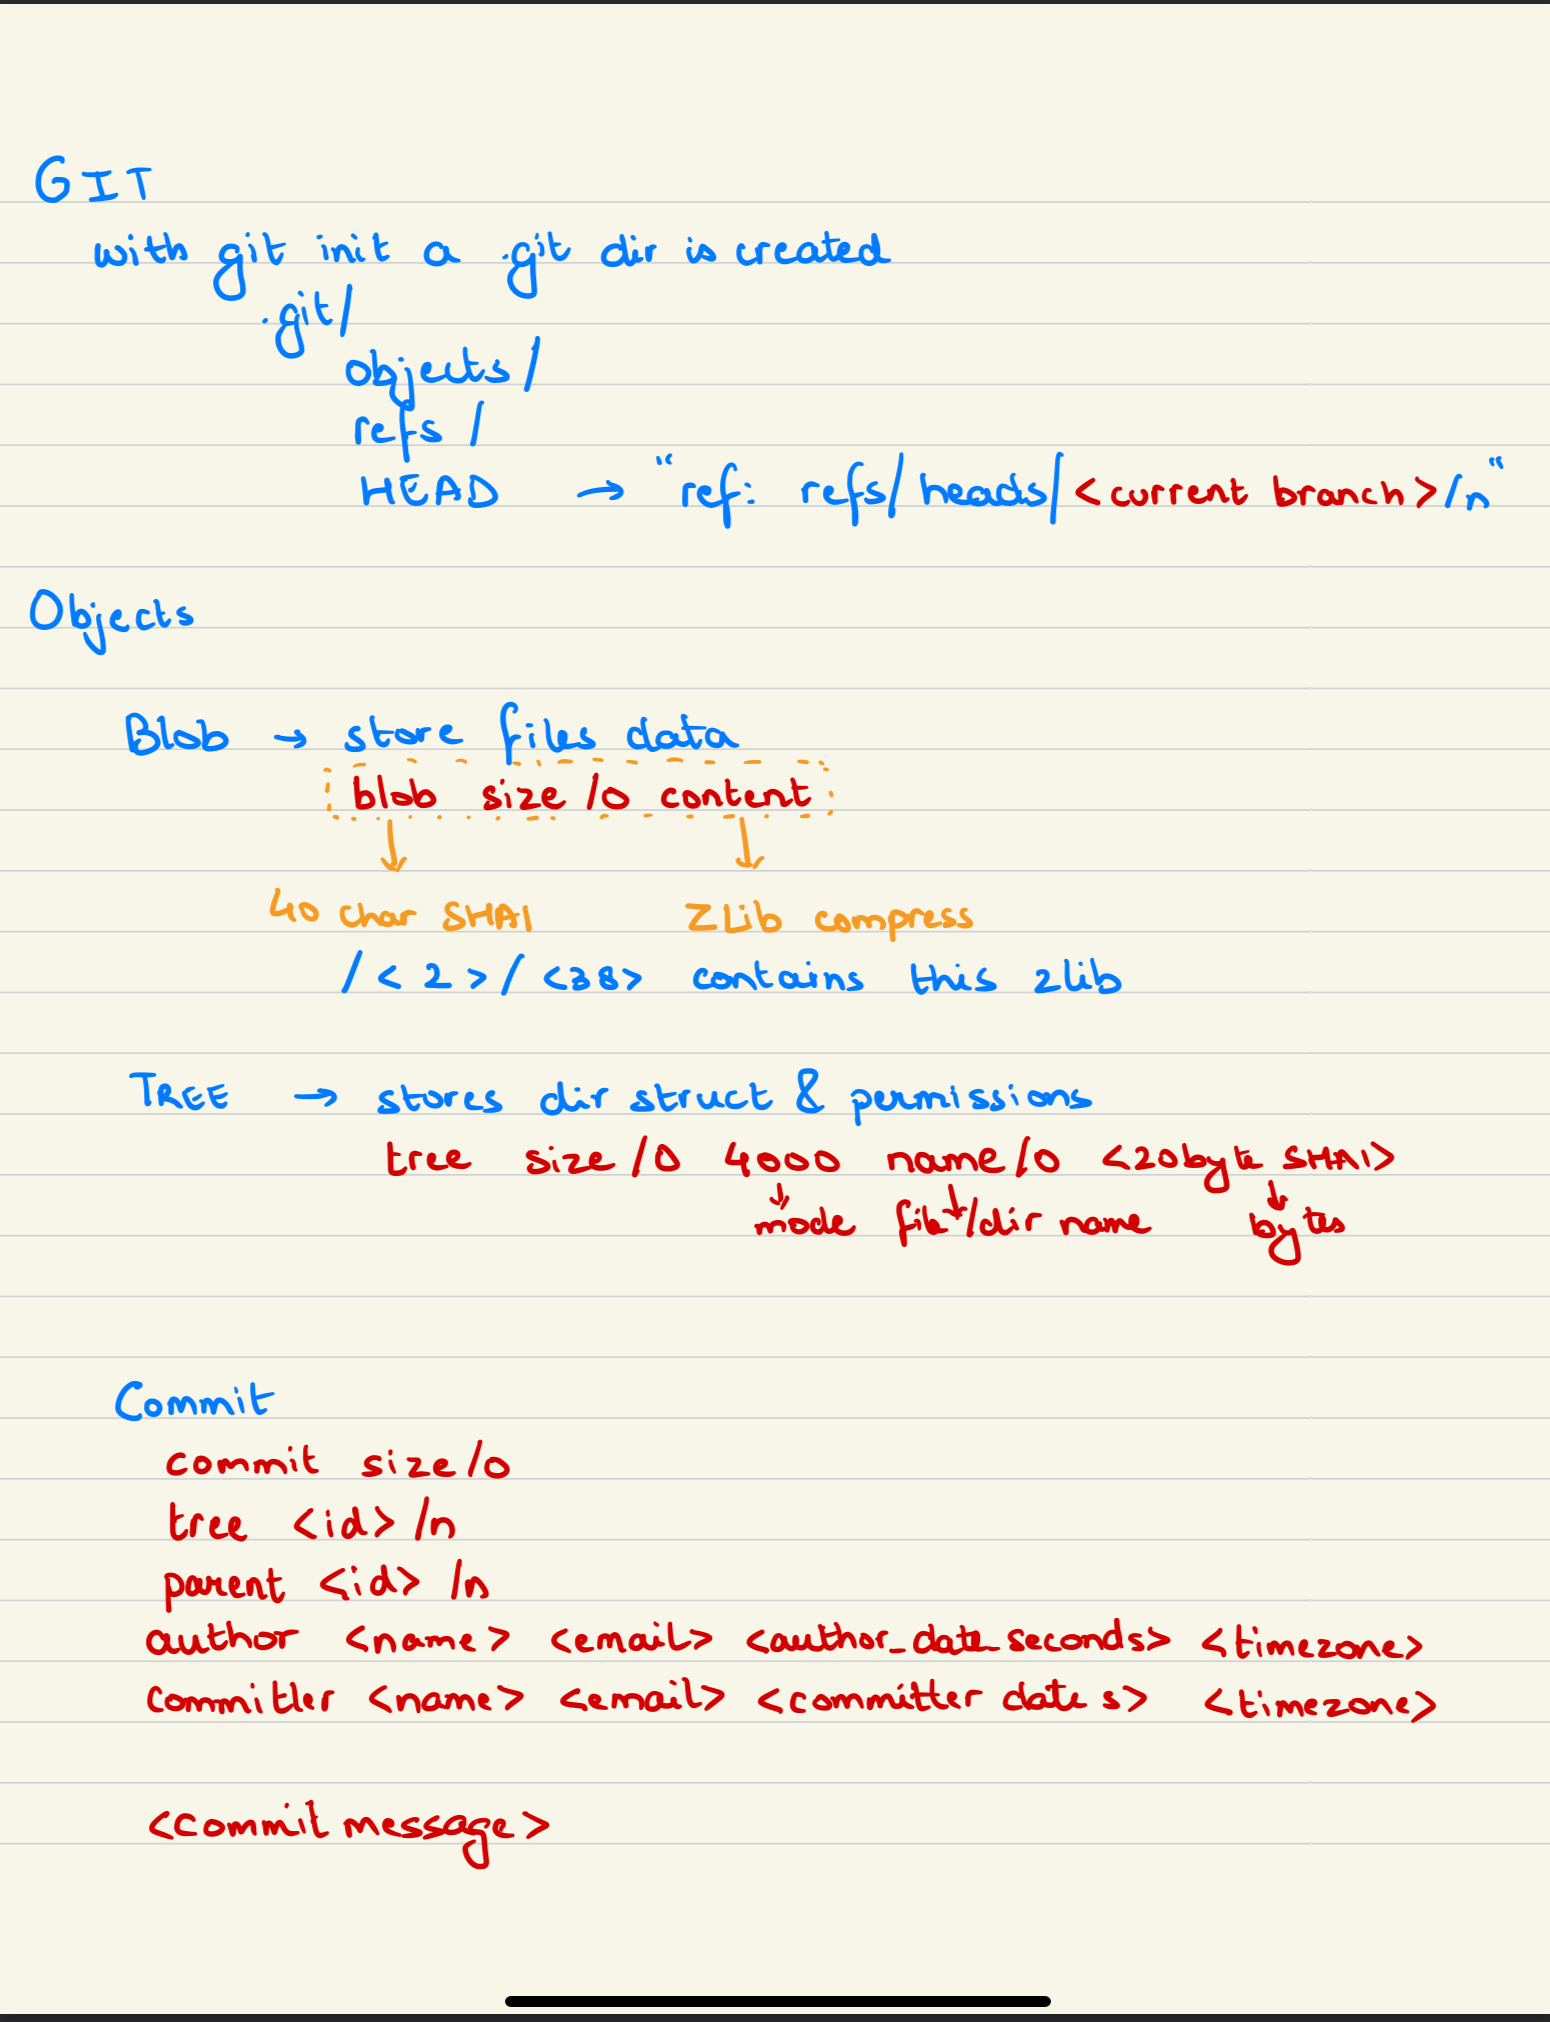 GIT
with git init a .git dir is created
.git/
objects/
refs /
HEAD → "ref: refs/heads/<current branch>/n"
Objects
Blob → store files data
blob size /0 content
40 char SHA1 ZLib compress
/<2>/<38> contains this zlib
TREE → stores dir struct & permissions
tree size /0 4000 name/0 <20byte SHA1>
mode file/dir name bytes
Commit
commit size/0
tree <id>/n
parent <id> /n
author <name> <email> <author_date_seconds> <timezone>
committer <name> <email> <committer date s> <timezone>
<commit message>